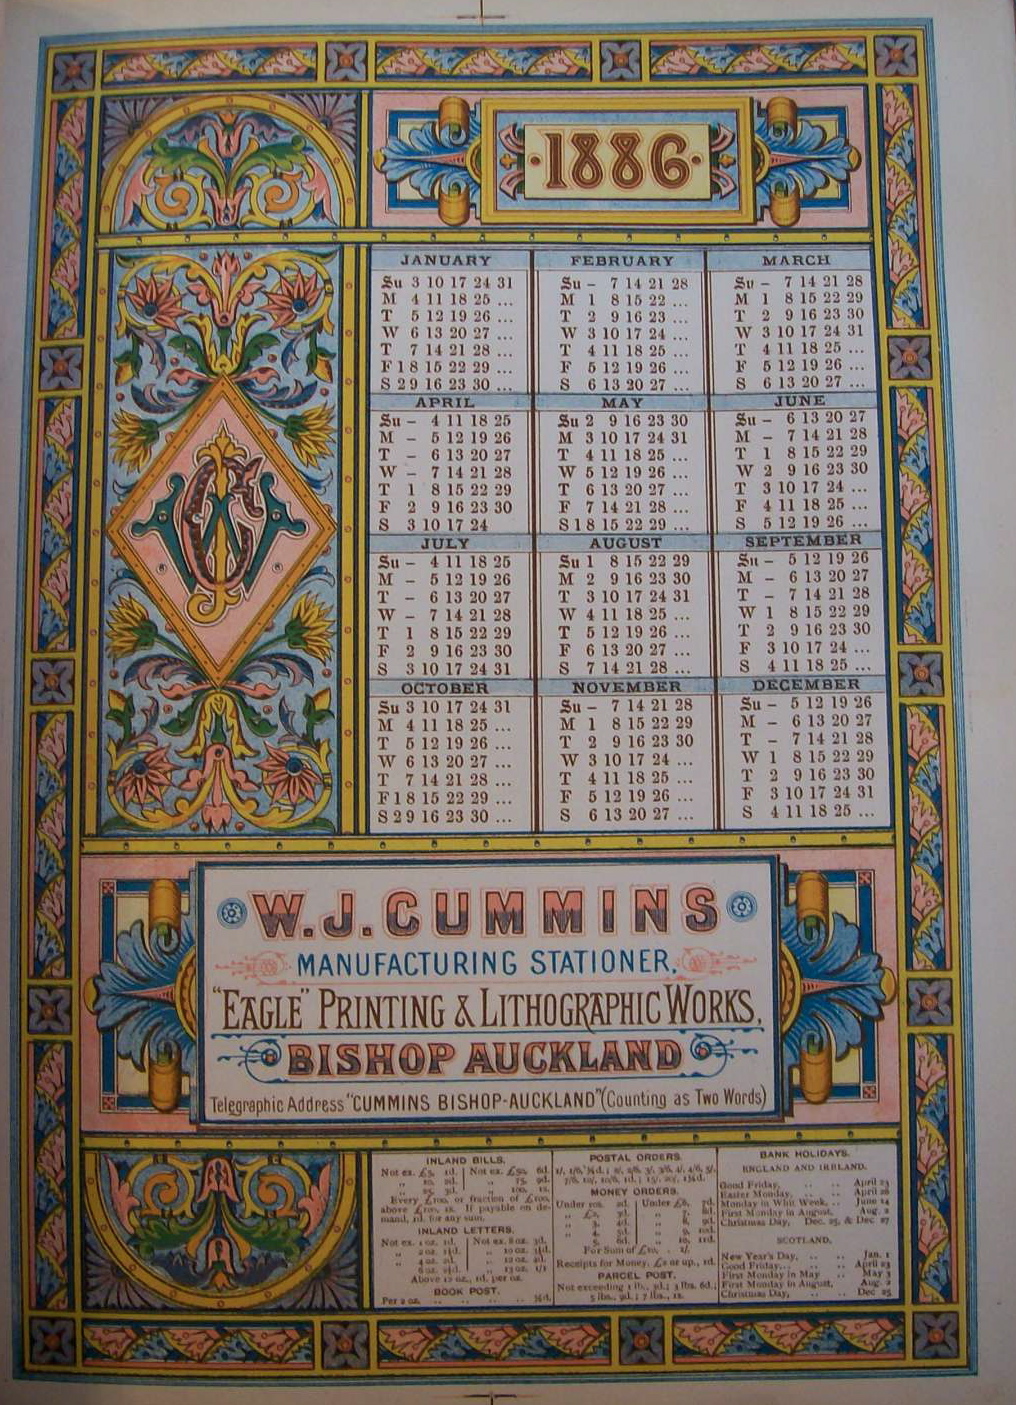 ·1886·
JANUARY
Su 3 10 17 24 31
M 4 11 18 25 ...
T 5 12 19 26 ...
W 6 13 20 27 ...
T 7 14 21 28 ...
F 1 8 15 22 29 ...
S 2 9 16 23 30 ...
FEBRUARY
Su – 7 14 21 28
M 1 8 15 22 ...
T 2 9 16 23 ...
W 3 10 17 24 ...
T 4 11 18 25 ...
F 5 12 19 26 ...
S 6 13 20 27 ...
MARCH
Su – 7 14 21 28
M 1 8 15 22 29
T 2 9 16 23 30
W 3 10 17 24 31
T 4 11 18 25 ...
F 5 12 19 26 ...
S 6 13 20 27 ...
APRIL
Su – 4 11 18 25
M – 5 12 19 26
T – 6 13 20 27
W – 7 14 21 28
T 1 8 15 22 29
F 2 9 16 23 30
S 3 10 17 24
MAY
Su 2 9 16 23 30
M 3 10 17 24 31
T 4 11 18 25 ...
W 5 12 19 26 ...
T 6 13 20 27 ...
F 7 14 21 28 ...
S 1 8 15 22 29 ...
JUNE
Su – 6 13 20 27
M – 7 14 21 28
T 1 8 15 22 29
W 2 9 16 23 30
T 3 10 17 24 ...
F 4 11 18 25 ...
S 5 12 19 26 ...
JULY
Su – 4 11 18 25
M – 5 12 19 26
T – 6 13 20 27
W – 7 14 21 28
T 1 8 15 22 29
F 2 9 16 23 30
S 3 10 17 24 31
AUGUST
Su 1 8 15 22 29
M 2 9 16 23 30
T 3 10 17 24 31
W 4 11 18 25 ...
T 5 12 19 26 ...
F 6 13 20 27 ...
S 7 14 21 28 ...
SEPTEMBER
Su – 5 12 19 26
M – 6 13 20 27
T – 7 14 21 28
W 1 8 15 22 29
T 2 9 16 23 30
F 3 10 17 24 ...
S 4 11 18 25 ...
OCTOBER
Su 3 10 17 24 31
M 4 11 18 25 ...
T 5 12 19 26 ...
W 6 13 20 27 ...
T 7 14 21 28 ...
F 1 8 15 22 29 ...
S 2 9 16 23 30 ...
NOVEMBER
Su – 7 14 21 28
M 1 8 15 22 29
T 2 9 16 23 30
W 3 10 17 24 ...
T 4 11 18 25 ...
F 5 12 19 26 ...
S 6 13 20 27 ...
DECEMBER
Su – 5 12 19 26
M – 6 13 20 27
T – 7 14 21 28
W 1 8 15 22 29
T 2 9 16 23 30
F 3 10 17 24 31
S 4 11 18 25 ...
W. J. CUMMINS
MANUFACTURING STATIONER.
"EAGLE" PRINTING & LITHOGRAPHIC WORKS,
BISHOP AUCKLAND
Telegraphic Address "CUMMINS BISHOP-AUCKLAND" (Counting as Two Words)
INLAND BILLS.
Every £100, or fraction of £100,
above £100, 1s. If payable on de-
mand, 1d. for any sum.
INLAND LETTERS.
Above 12 oz., 1d. per oz.
BOOK POST.
Per 2 oz. .. .. .. .. ½d.
POSTAL ORDERS.
MONEY ORDERS.
For Sum of £10, .. 1/
Receipts for Money, £2 or up., 1d.
PARCEL POST.
Not exceeding 1 lb., 3d.; 3 lbs. 6d.;
5 lbs., 9d.; 7 lbs., 1s.
BANK HOLIDAYS.
ENGLAND AND IRELAND.
Good Friday, .. .. April 23
Easter Monday, .. .. April 26
Monday in Whit Week, .. June 14
First Monday in August, Aug. 2
Christmas Day, Dec. 25, & Dec 27
SCOTLAND.
New Year's Day, .. .. Jan. 1
Good Friday,... .. .. April 23
First Monday in May .. May 3
First Monday in August, Aug. 2
Christmas Day, .. .. Dec 25